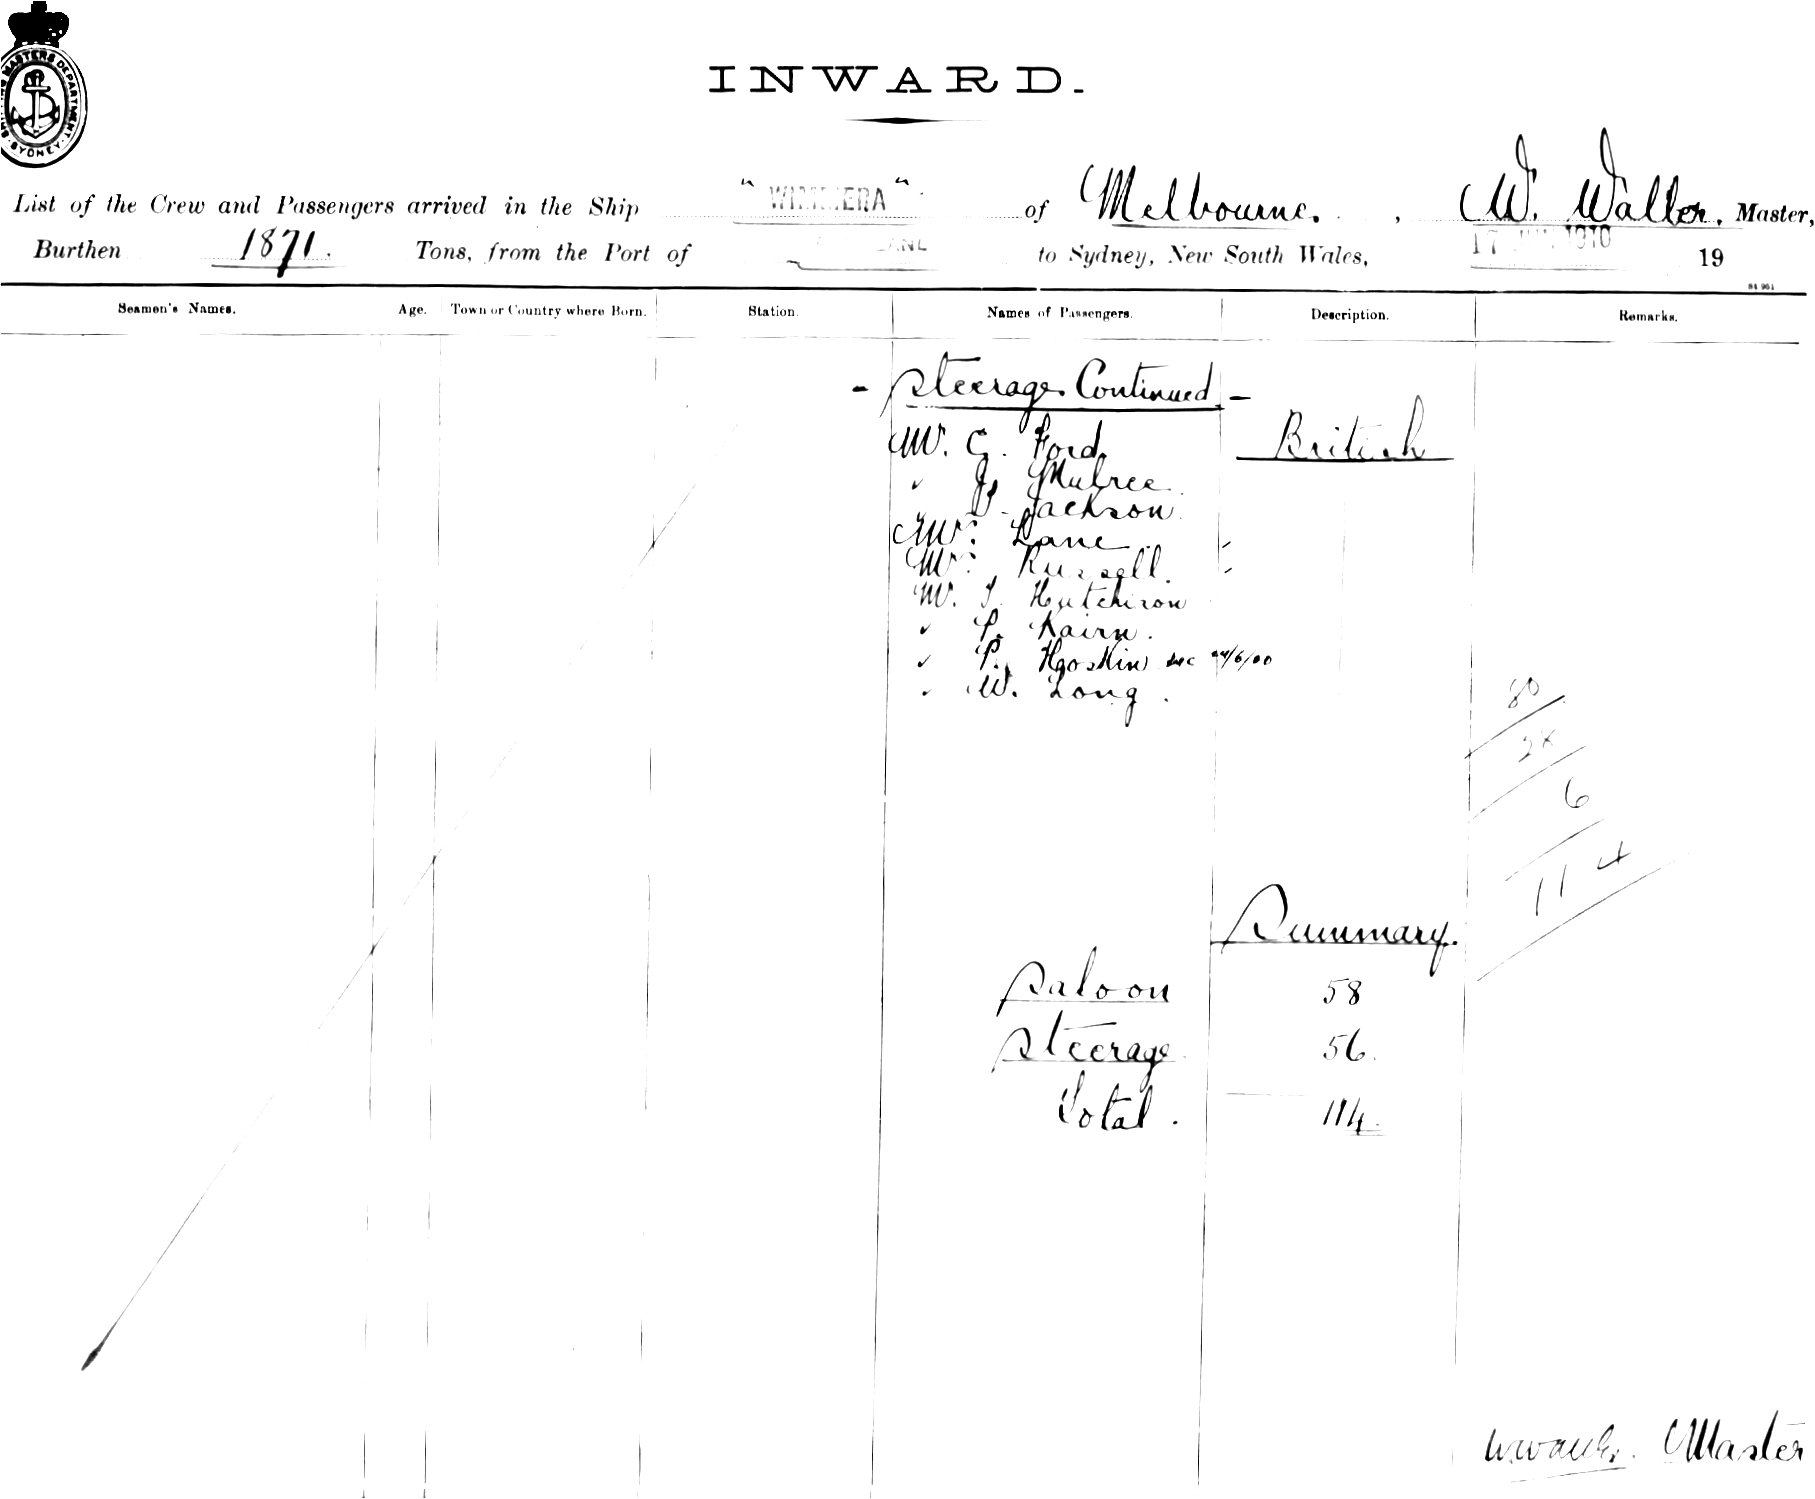 SHIPPING MASTERS DEPARTMENT SYDNEY
INWARD.
List of the Crew and Passengers arrived in the Ship "WIMMERA" of Melbourne. , W. Waller. Master,
Burthen 1871. Tons, from the Port of to Sydney, New South Wales, 17 1910 19
Seamen's Names. Age. Town or Country where Born. Station. Names of Passengers. Description. Remarks.
- Steerage Continued. -
Mr. C. Ford. British
" J. Mulree.
Jackson.
Lane
Russell.
Mr. Hutchison
" P. Kairn.
" P. Hooskin
" W. Long.
80
28
6
114
Summary.
Saloon 58
Steerage 56.
Total. 114.
W. Waller. Master